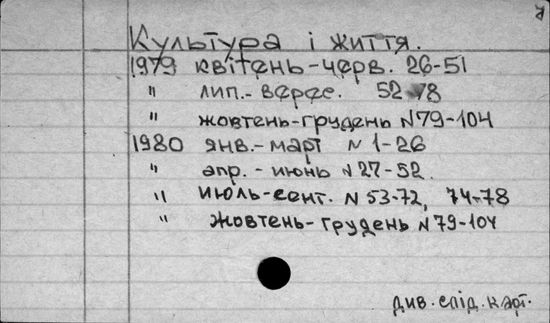 Культура і життя.
1979 квітень-черв. 26-51
" лип.- верес. 52-78
" жовтень-грудень N 79-104
1980 янв.-март N 1-26
" апр.- июнь N 27-52.
" июль-сент. N 53-72, 74-78
" жовтень- грудень N 79-104
див. слід. карт.